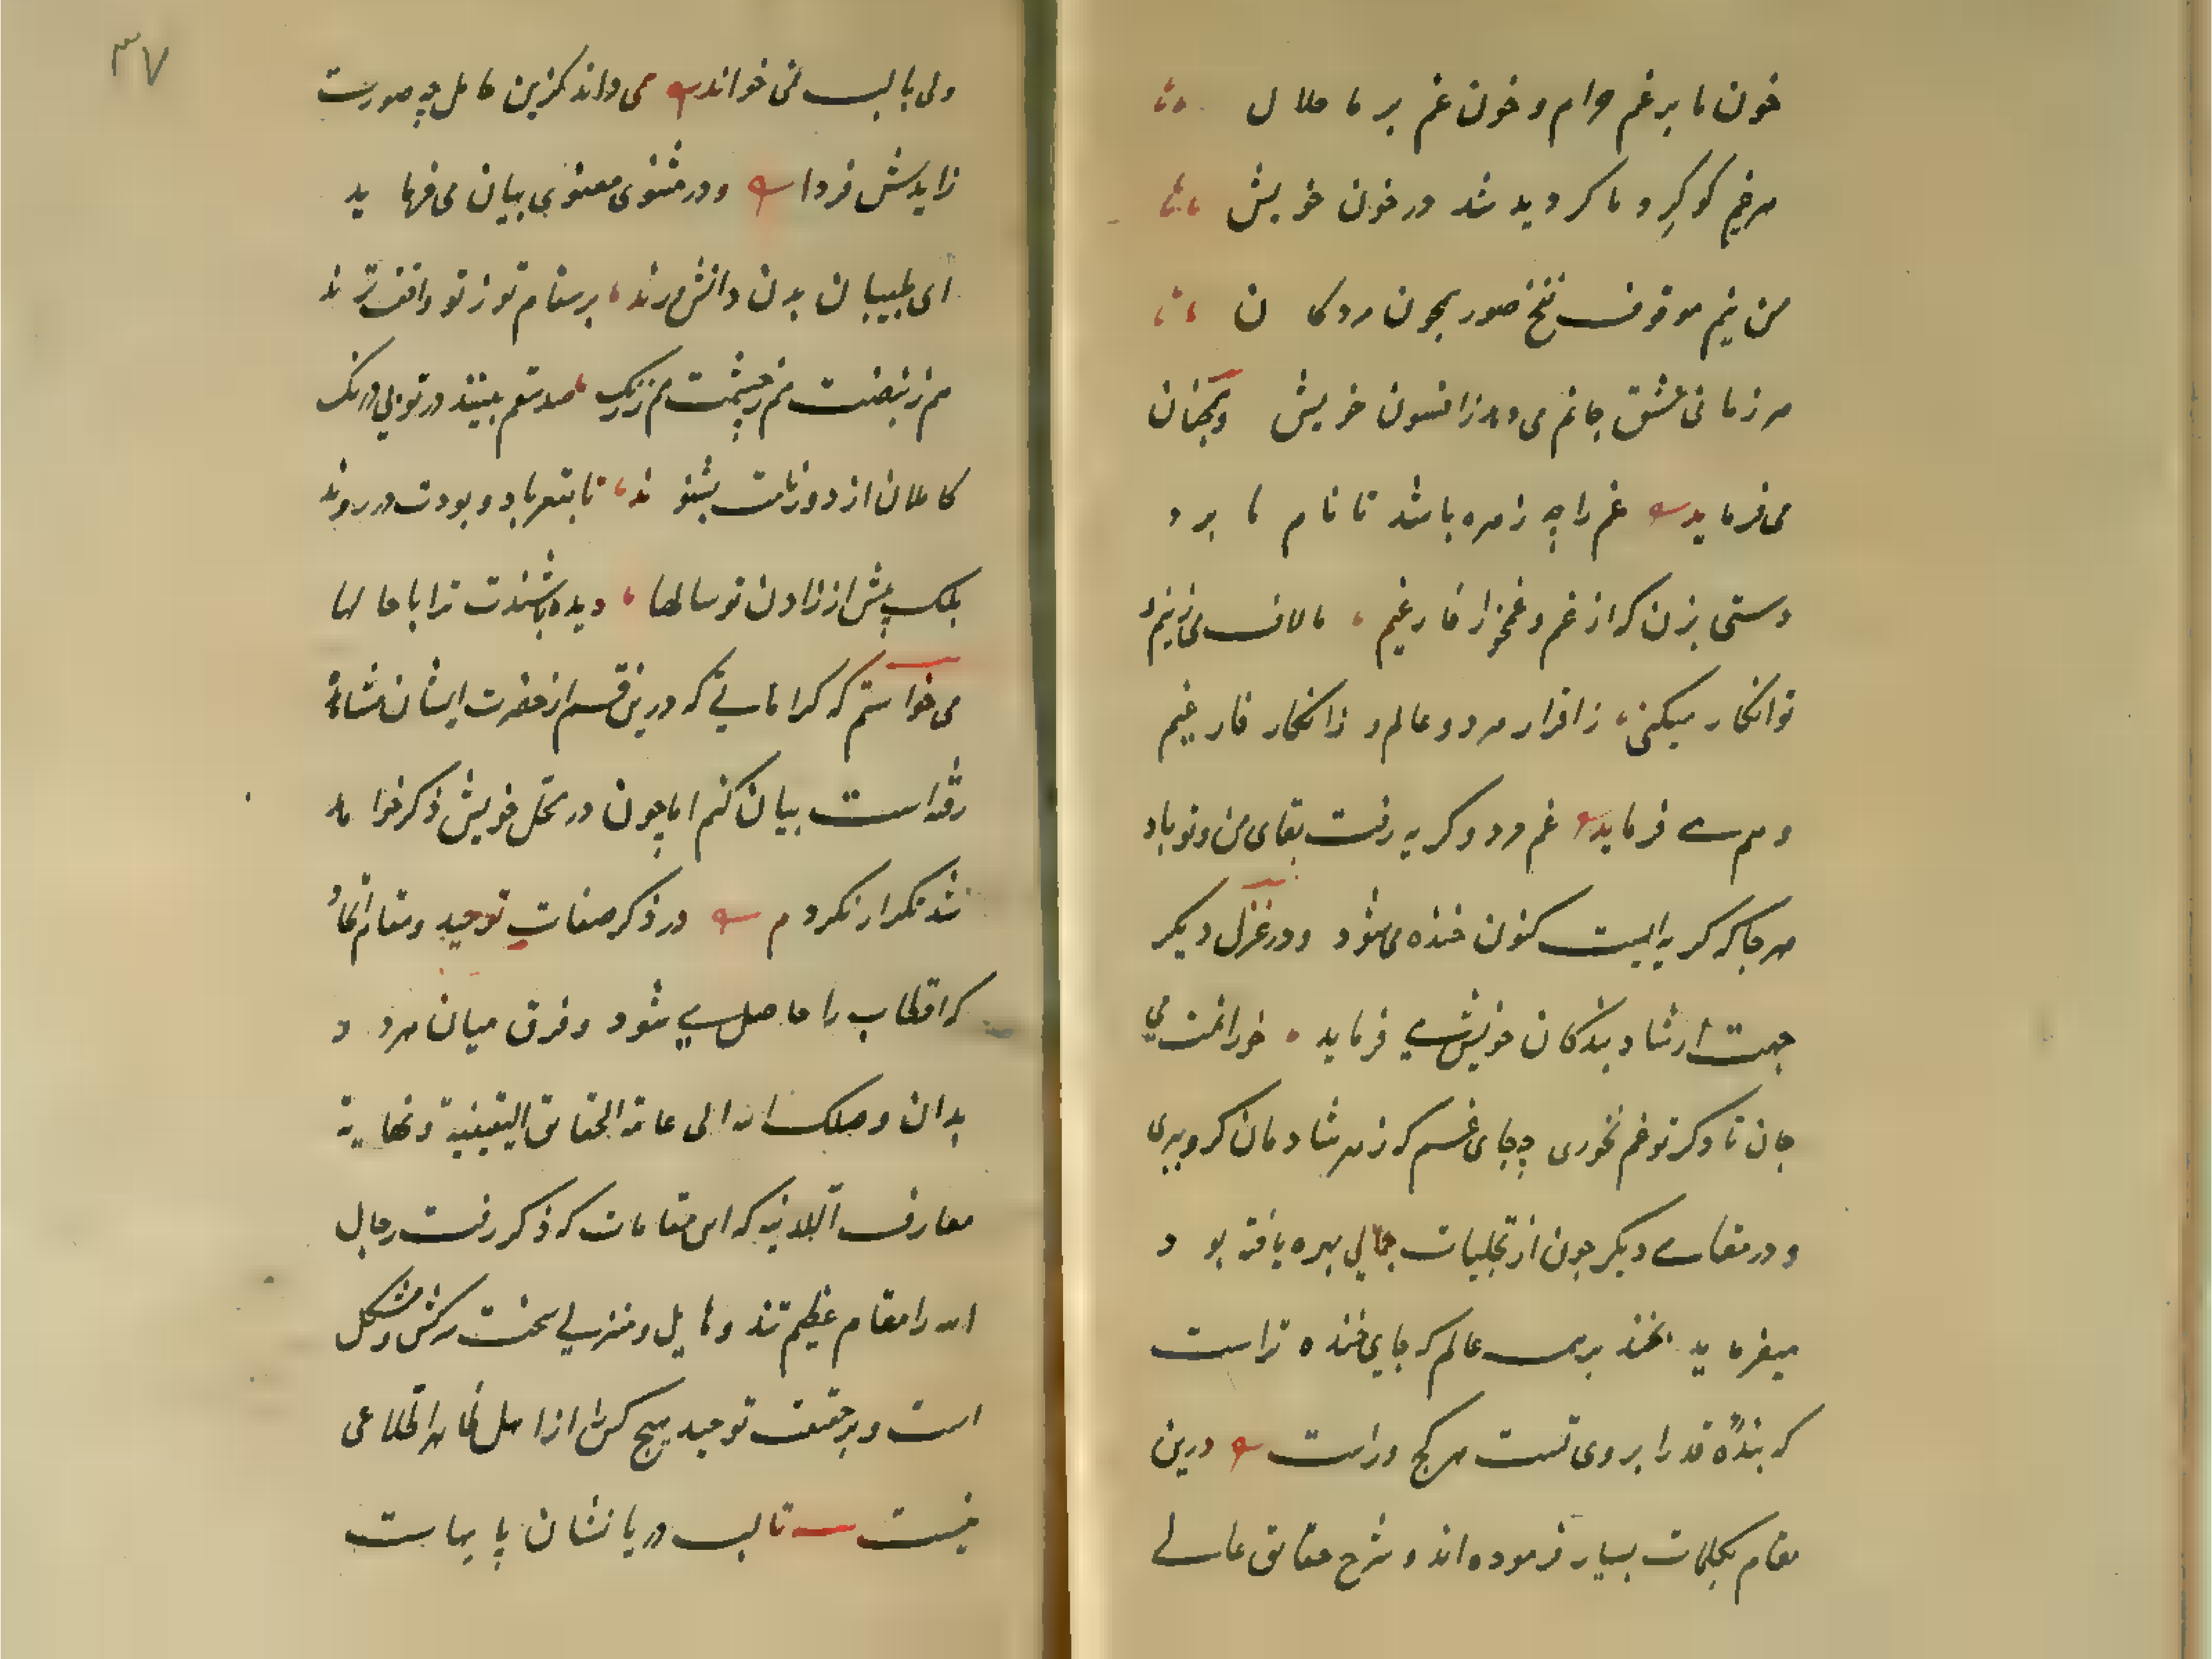 خون ما بر غم حرام و خون غم بر ما حلال
هر غمی کو کرد ما کردید شد در خون خویش
من نیم موقوف نفخ صور همچون مردکان
هر زمانی عشق جانم می دهد زافسون خویش وهمچنان
می فرماید غم را چه زهره باشد تا نام ما برد
دستی بزن که از غم و غمخوار فارغیم ما لاف می زنیم و
تو انکار میکنی زاقرار هر دو عالم و زانکار فارغیم
و هم می فرماید غم مرد و کریه رفت بقای من و تو باد
هر جا که کریه ایست کنون خنده می شود و در غزل دیکر
جهت ارشاد بندکان خویش می فرماید خورانمت می
جان تا دکر تو غم نخوری چه جای غم که ز هر شادمان کرو ببری
و در مقامی دیکر چون از تجلیات جمالی بهره یافته بود
میفرماید بخند بر همه عالم که جای خنده تراست
که بندهٔ قد ابروی تست هر کج و راست درین
مقام کلمات بسیار فرموده اند و شرح حقایق عالی
۳۷
ولی بالب نمی خواند می داند کزین حامل چه صورت
زایدش فردا و در مثنوی معنوی بیان می فرماید
ای طبیبان بدن دانش ورند بر سقام تو ز تو واقف ترند
هم ز نبضت هم ز چشمت هم ز رنک صد سقم بینند در تو بی درنک
کاملان از دور نامت بشنوند تا بقعر باد و بودت در روند
بلک پیش از زادن تو سالها دیده باشندت ترا با حالها
می خواستم که کراماتی که درین قسم از حضرت ایشان مشاهده
رفته است بیان کنم اما چون در محل خویش ذکر خواهد
شد تکرار نکردم در ذکر صفات توحید و مقام اتحاد
که اقطاب را حاصل می شود و فرق میان هر دو
بدان وصلک الله الی غایة الحقایق الیقینیة و نهایة
معارف اللدنیه که این مقامات که ذکر رفت رجال
الله را مقام عظیم تند و هایل و منزلی سخت سرکش و مشکل
است و بر حقیقت توحید هیچ کس را از اهل ظاهر اطلاعی
نیست تا لب دریا نشان پایهاست